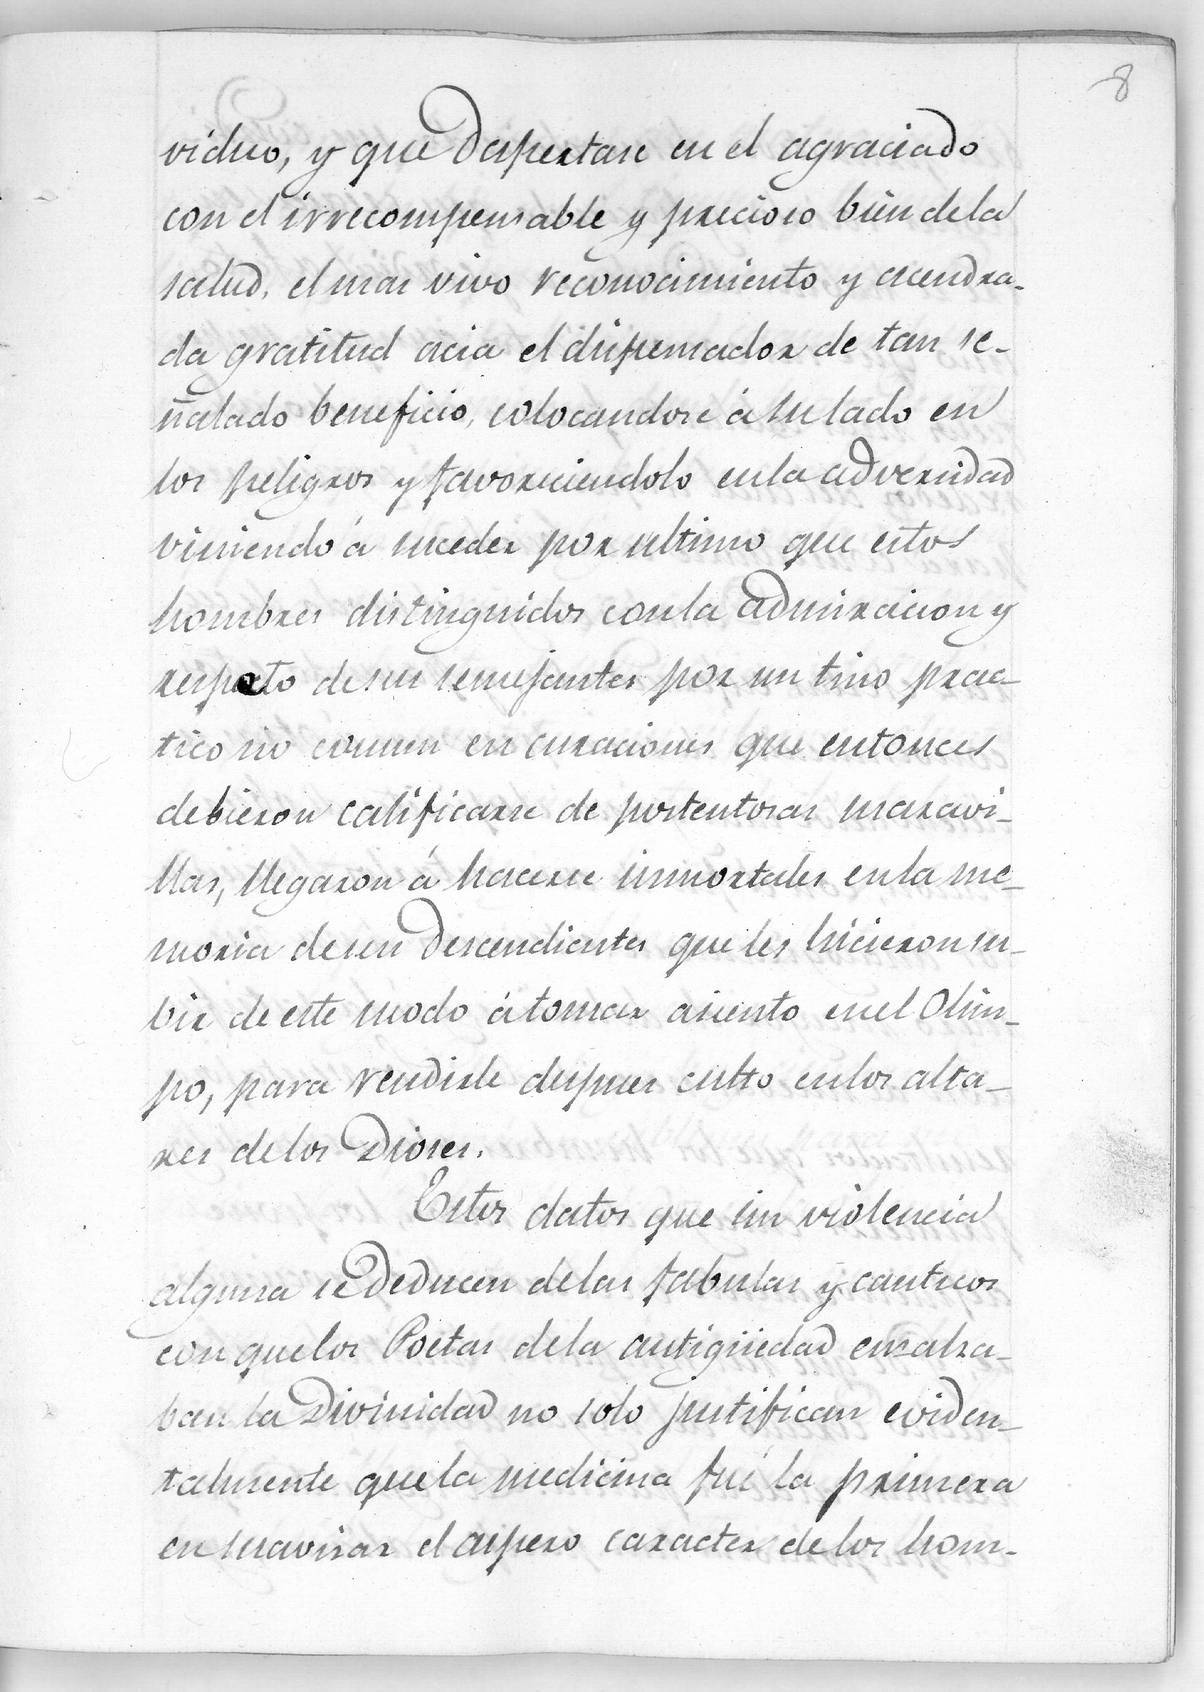 8
viduo, y que despertase en el agraciado
con el irrecompensable y precioso bien de la
salud, el mas vivo reconocimiento y acendra-
da gratitud acia el dispensador de tan se-
ñalado beneficio, colocandose á su lado en
los peligros y favoreciendolo en la adversidad
viniendo á suceder por ultimo que estos
hombres distinguidos con la admiracion y
respeto de sus semejantes por un tino prac-
tico no comun en curaciones que entonces
debieron calificarse de portentosas maravi-
llas, llegaron á hacerse inmortales en la me-
moria de sus descendientes que les hicieron su-
bir de este modo á tomar asiento en el Olim-
po, para rendirle despues culto en los alta-
res de los Dioses.
Estos datos que sin violencia
alguna se deducen de las fabulas y canticos
con que los Poetas de la antigüedad ensalsa-
ban la Divinidad no solo justifican eviden-
talmente que la medicina fué la primera
en suavisar el aspero caracter de los hom-